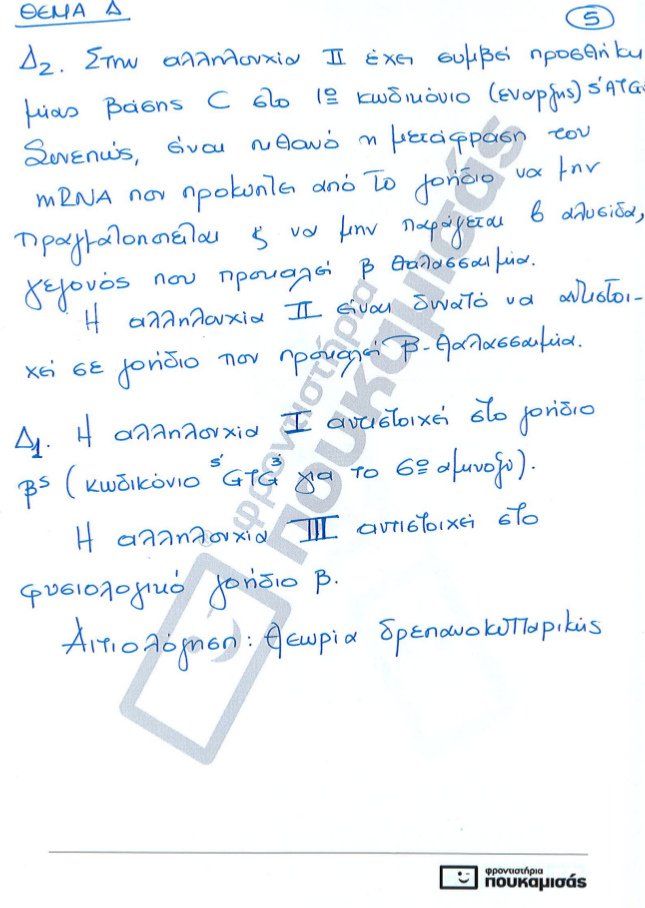 ΘΕΜΑ Δ
5
Δ2. Στην αλληλουχία II έχει συμβεί προσθήκη
μίας βάσης C στο 1º κωδικόνιο (έναρξης) 5'ATG
Συνεπώς, είναι πιθανό η μετάφραση του
mRNA που προκύπτει από το γονίδιο να μην
πραγματοποιείται & να μην παράγεται β αλυσίδα,
γεγονός που προκαλεί β θαλασσαιμία.
Η αλληλουχία II είναι δυνατό να αντιστοι-
χεί σε γονίδιο που προκαλεί β-θαλασσαιμία.
Δ1. Η αλληλουχία I αντιστοιχεί στο γονίδιο
βˢ (κωδικόνιο 5'GTG3' για το 6º αμινοξύ).
Η αλληλουχία III αντιστοιχεί στο
φυσιολογικό γονίδιο β.
Αιτιολόγηση: θεωρία δρεπανοκυτταρικής
φροντιστήρια
πουκαμισάς
φροντιστήρια
πουκαμισάς